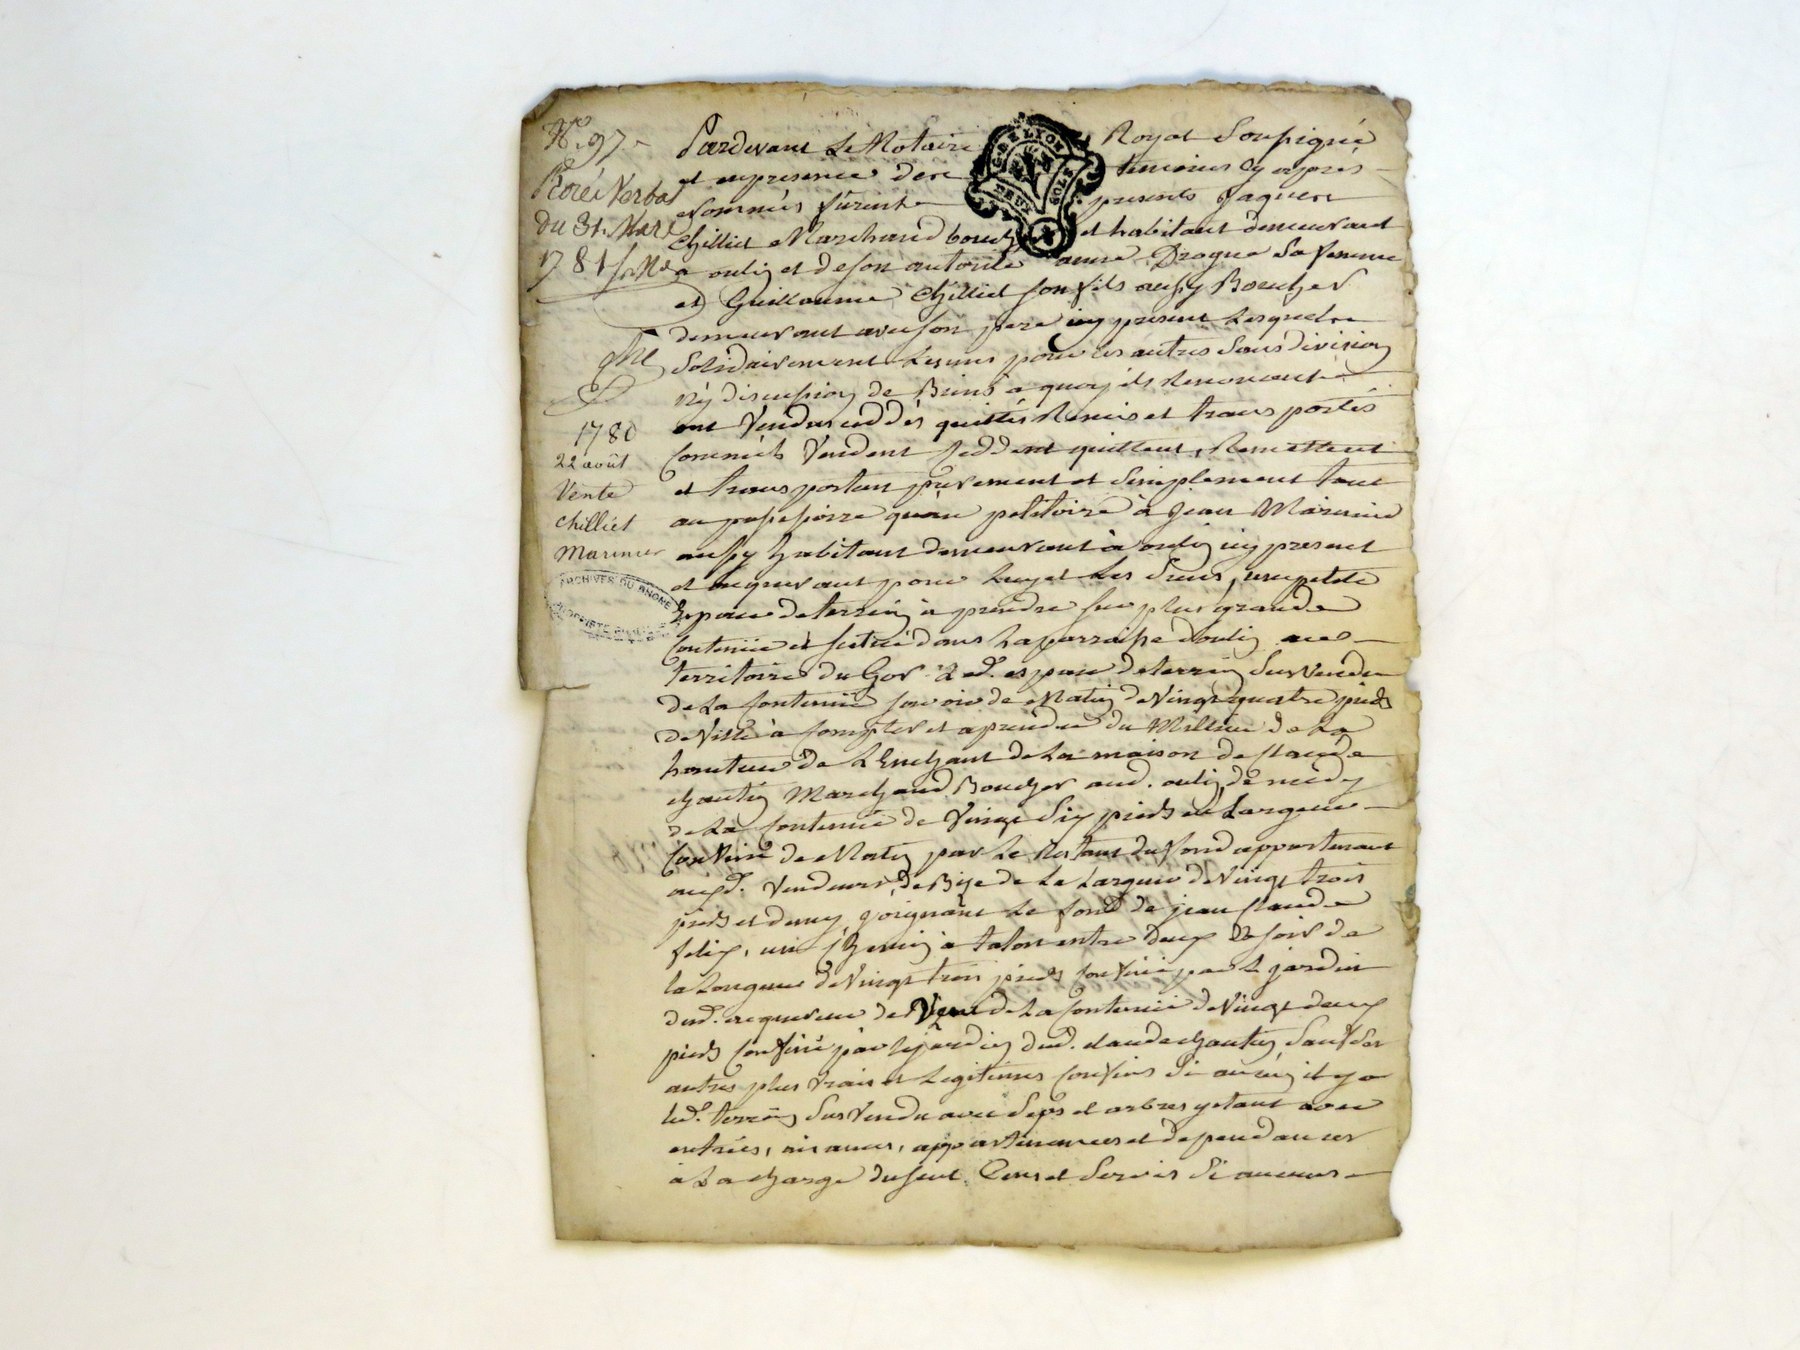 N.° 97
Cotté Verbal
du 31. Mars
1781
1780
22 août
Vente
chilliet
Marinier
ARCHIVES DU RHONE
G. DE LYON
DEUX SOLS
Pardevant Le Notaire Royal Soussigné
et en presence des temoins cy après
Nommés furent presents Jaques
Chilliet Marchand boucher et habitant demeurant
a oulin et de son autorité anne Drogue Sa femme
et Guillaume Chilliet son fils aussy Boucher
demeurant avec son pere icy present Lesquels
Solidairement Les uns pour les autres Sans division
ny discussion de Biens a quoy ils Renoncent
ont Vendus ceddés quittés Remis et transportés
comme ils Vendent Ceddent quittent, Remettent
et transportent purement et Simplement tant
au possessoire quau petitoire à Jean Marinier
aussy habitant demeurant à oulin icy present
et acquerant pour Luy et Les Siens, une petite
Espace de terrein à prendre sur plus grande
Contenüe et scitué dans La parroisse d'oulin au
territoire du Gor. Led. espace de terrein Sus Vendu
de La Contenüe sçavoir de Matin de Vingt quatre pieds
de Ville à Compter et a prendre du Millieu de La
hauteur de L'Enchant de La maison de Claude
chautin Marchand Boucher aud. oulin, de midy
de La Contenüe de Vingt Six pieds de Largeur
Confiné de Matin par Le Restant du fond appartenant
auxd. Vendeurs, de Bize de La Largeur de Vingt trois
pieds et demy joignant Le fond de jean Claude
felix, un Chemin à talon entre deux de soir de
la Longueur de Vingt trois pieds Confiné par Le jardin
dud. acquereur de Vent de La Contenüe de Vingt deux
pieds Confiné par Le jardin dud. claude chautin Sauf Ses
autres plus Vrais et Legitimes Confins Si aucun il y a
Led. terrein Sus Vendu avec Seps et arbres y etant avec
entrées, aisances, appartenances et dependances
à La charge du seul Cens et Servis Si aucuns